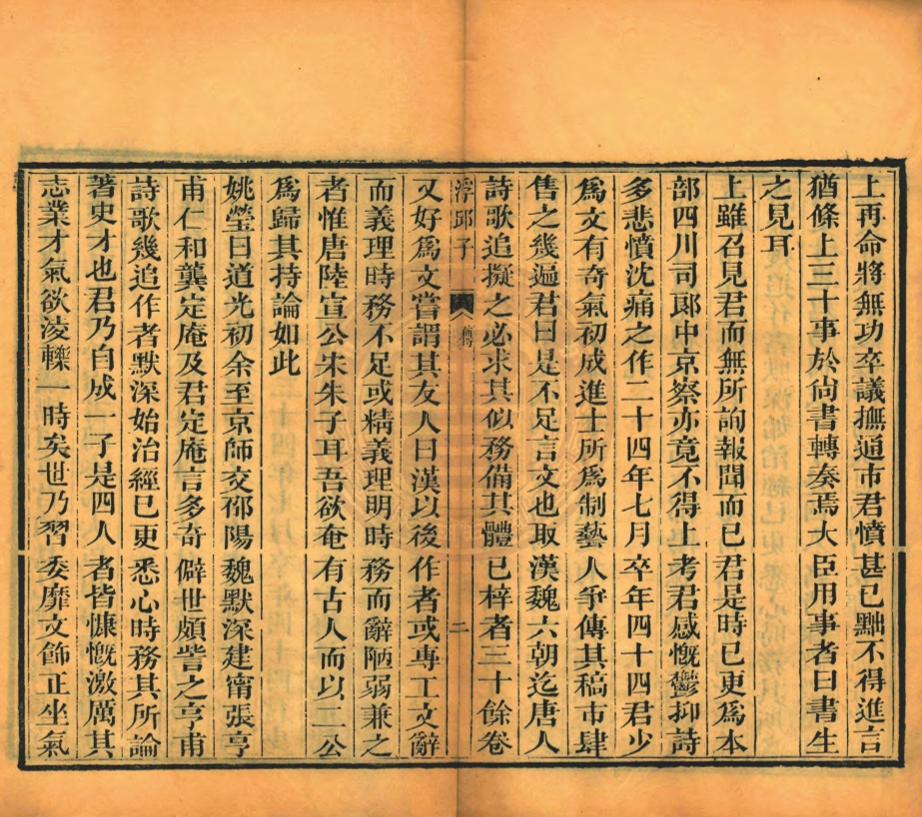 上再命將無功卒議撫通市君憤甚已黜不得進言
猶條上三十事於尙書轉奏焉大臣用事者曰書生
之見耳
上雖召見君而無所詢報聞而已君是時已更爲本
部四川司郞中京察亦竟不得上考君感慨鬱抑詩
多悲憤沈痛之作二十四年七月卒年四十四君少
爲文有奇氣初成進士所爲制藝人爭傳其稿市肆
售之幾遍君曰是不足言文也取漢魏六朝迄唐人
詩歌追擬之必求其似務備其體已梓者三十餘卷
浮邱子 傳 二
又好爲文嘗謂其友人曰漢以後作者或專工文辭
而義理時務不足或精義理明時務而辭陋弱兼之
者惟唐陸宣公朱朱子耳吾欲奄有古人而以二公
爲歸其持論如此
姚瑩曰道光初余至京師交邵陽魏默深建甯張亨
甫仁和龔定庵及君定庵言多奇僻世頗訾之亨甫
詩歌幾追作者默深始治經已更悉心時務其所論
著史才也君乃自成一子是四人者皆慷慨激厲其
志業才氣欲淩轢一時矣世乃習委靡文飾正坐氣